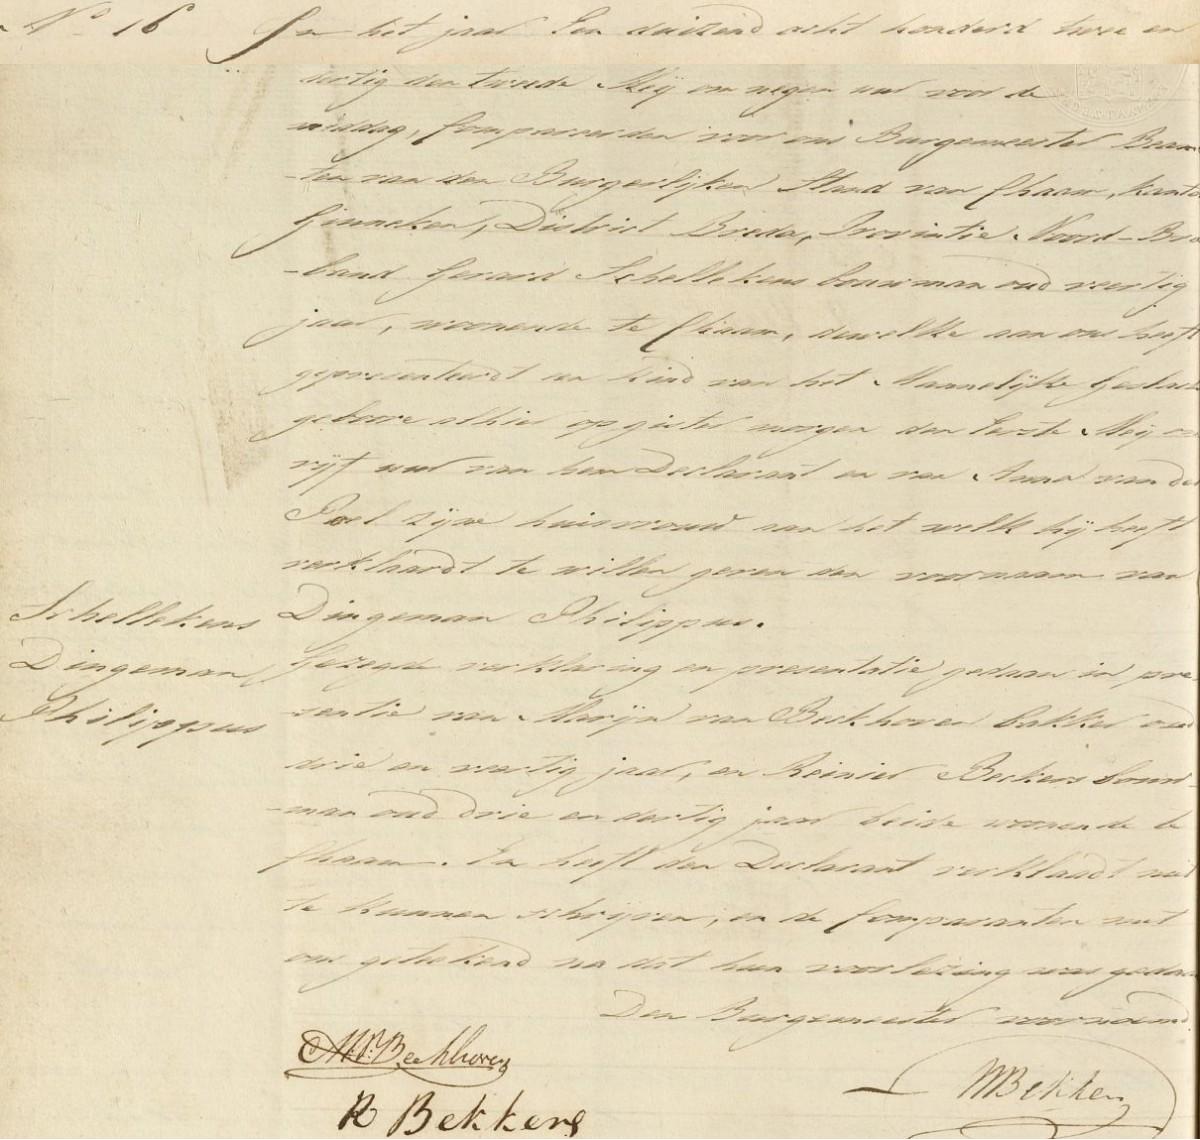 N.o 16 In het jaar Een duizend acht honderd twee en
dertig den tweede Meij om negen uur voor de
middag, Compareerden voor ons Burgemeester Beam
-ten van den Burgerlijken Stand van Chaam, kanto
Ginneken, District Breda, Provintie Noord-Bra
-band Gerard Schellekens bouwman oud veertig
jaar, woonende te Chaam, dewelke aan ons heeft
gepresenteerdt een kind van het Mannelijke Geslach
geboore alhier op gister morgen den Eerste Meij om
vijf uur van hem Declarant en van Anna van der
Poel zijne huisvrouw aan het welk hij heeft
verklaardt te willen geven den voornaam van
Schellekens Dingeman Philippus
Dingeman Philippus.
Gezegde verklaring en presentatie gedaan in pre-
-sentie van Marijn van Beckhoven bakker oud
drie en veertig jaar, en Reinier Beckers bouw-
-man oud drie en dertig jaar beide woonende te
Chaam. En heeft den Declarant verklaardt niet
te kunnen schrijven, en de Comparanten met
ons getekend na dat hun voorlezing was gedaa
Den Burgemeester voornoemd
M.V. Beckhoven
MBekken
R Bekkers